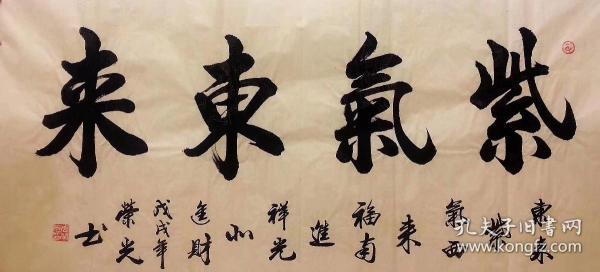 紫氣東来
東來
紫
氣西
来
福南
進
祥光
北
進財
戊戌年
榮光
书
孔夫子旧书网
www.kongfz.com